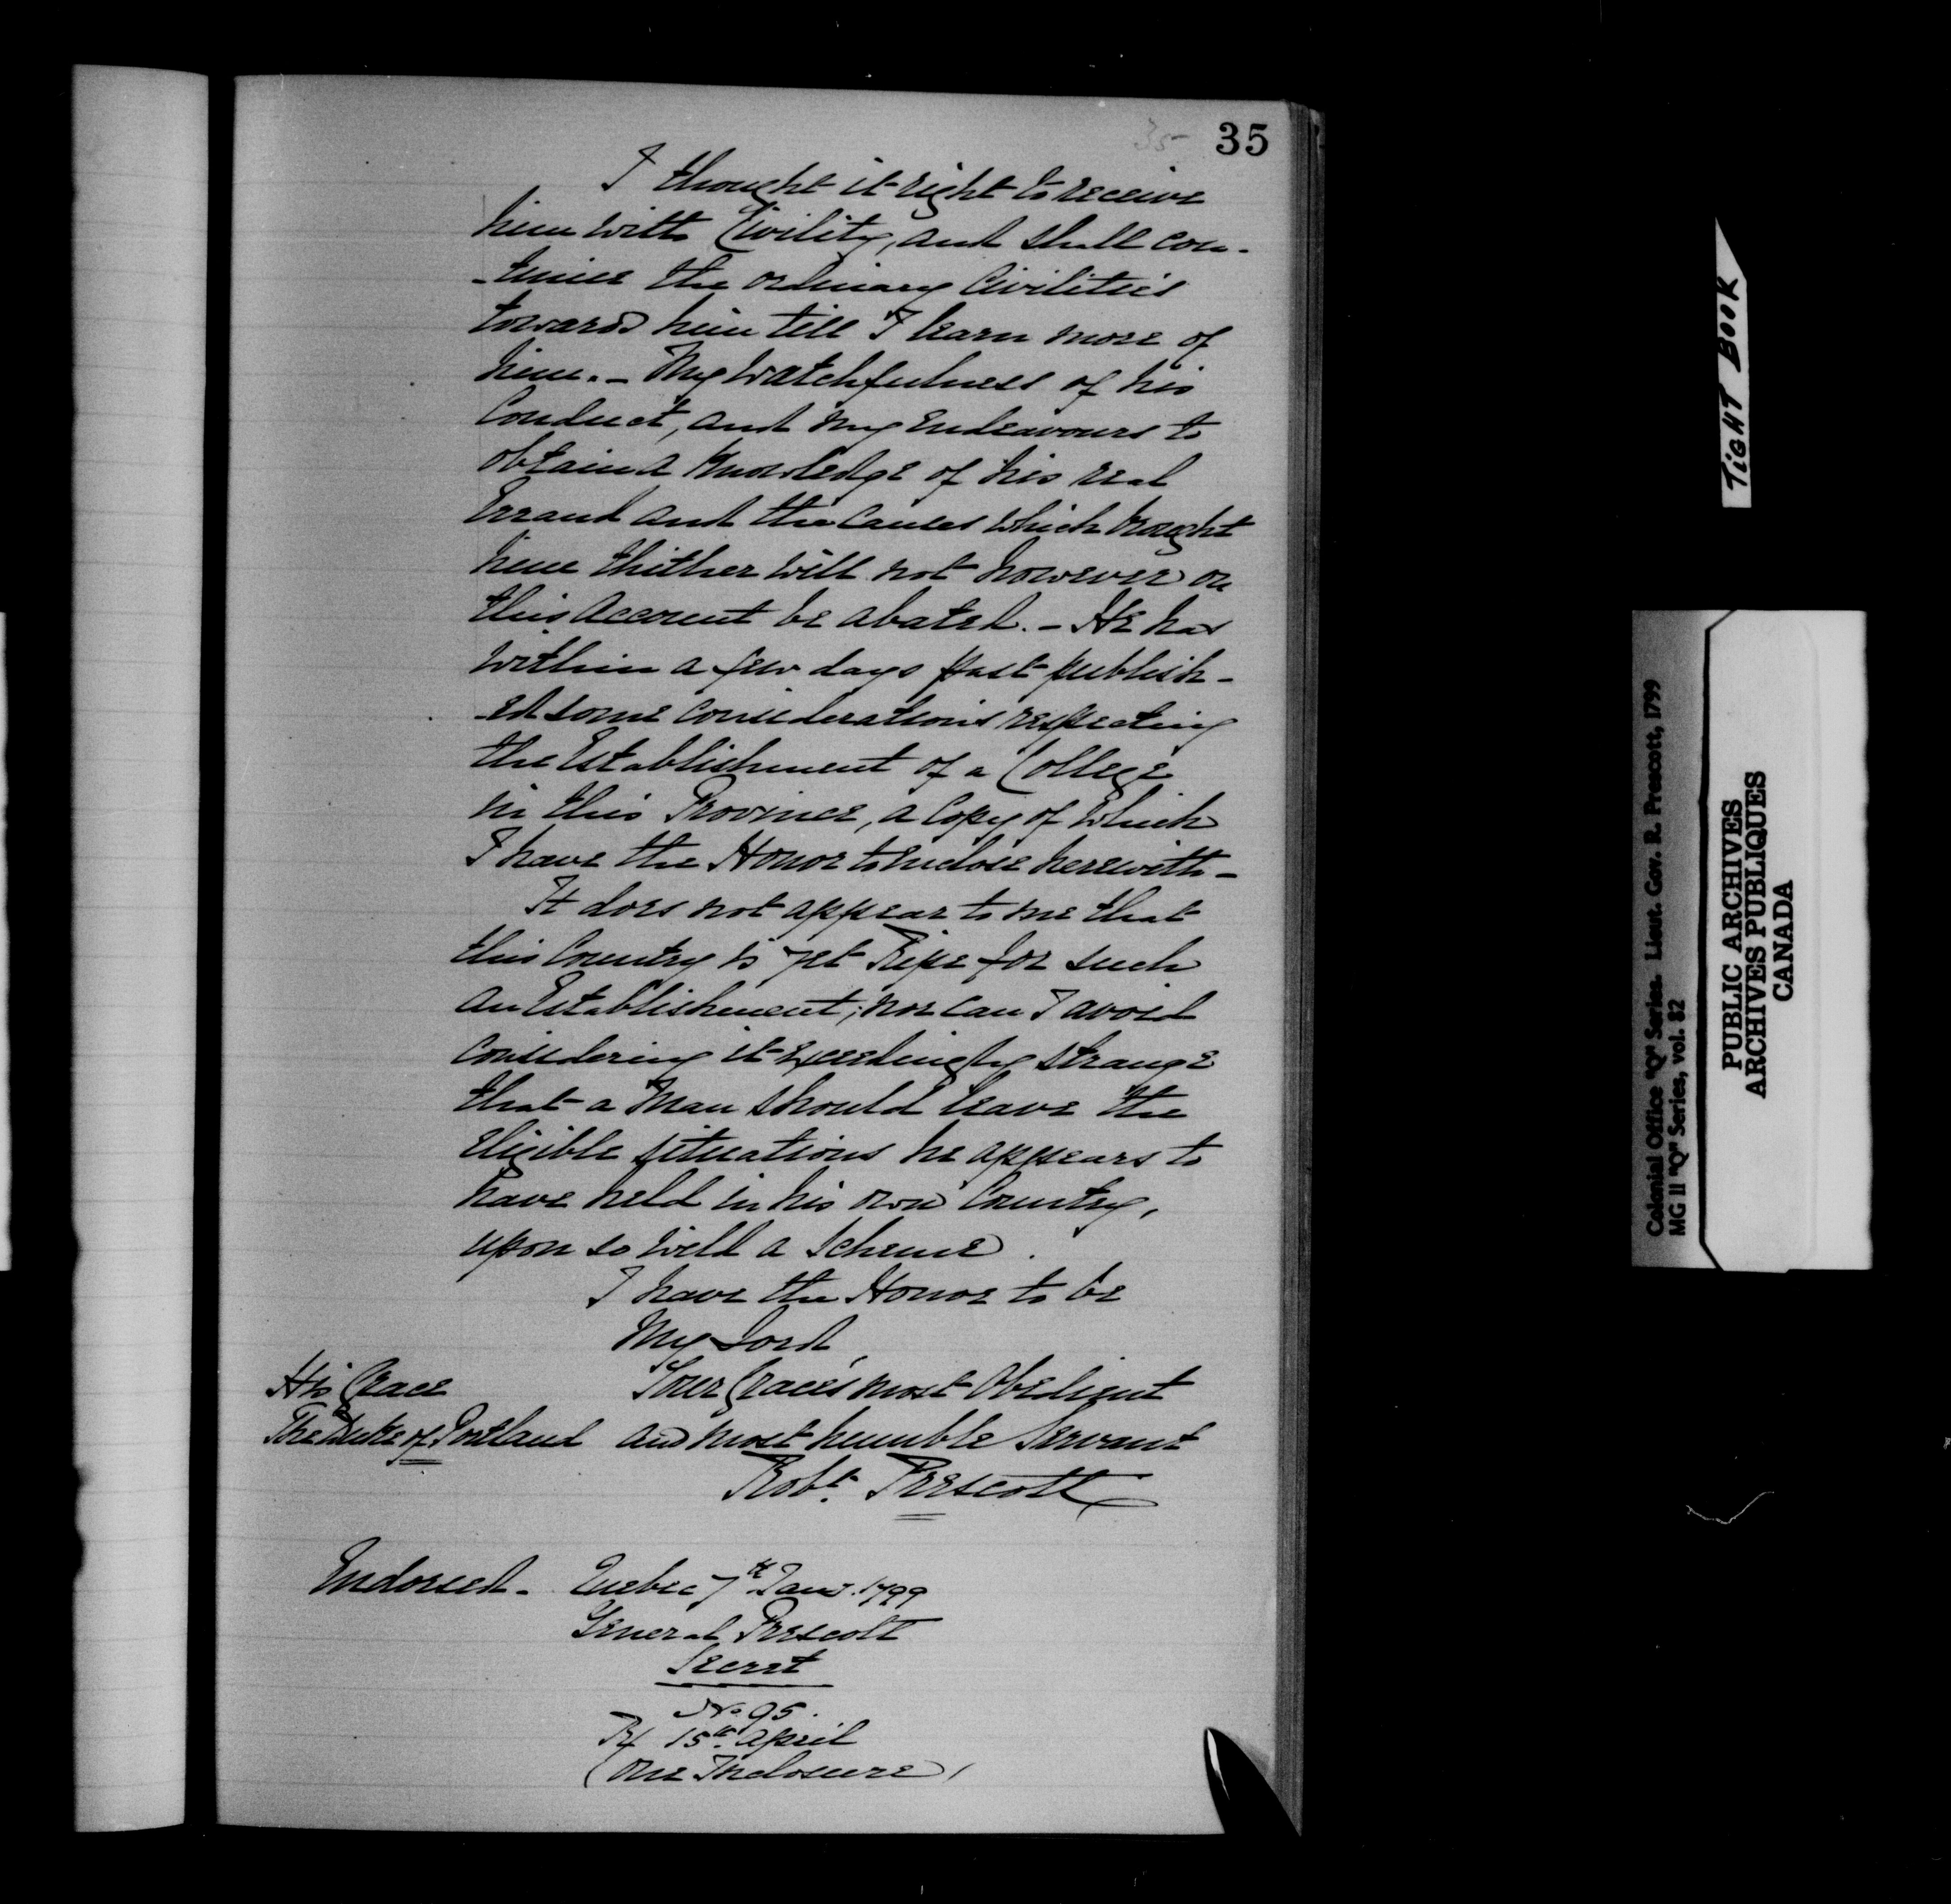 35
35
I thought it right to receive
him with Civility, and shall con-
-tinue the ordinary Civilities
towards him till I learn more of
him. - My Watchfulness of his
Conduct, and my endeavours to
obtain a Knowledge of his real
Errand and the causes which brought
him thither will not however on
this account be abated. - He has
within a few days past publish-
-ed some considerations respecting
the Establishment of a College
in this Province, a Copy of which
I have the Honor to inclose herewith -
It does not appear to me that
this Country is yet Ripe for such
an Establishment; nor can I avoid
considering it exceedingly strange
that a Man should leave the
eligible situations he appears to
have held in his own Country,
upon so wild a Scheme.
I have the Honor to be
My Lord
Your Grace's most Obedient
and most humble Servant
Robt. Prescott
His Grace
The Duke of Portland
Endorsed - Quebec 7th Jany. 1799
General Prescott
Secret
No. 95.
Rx 15th April
(One Inclosure)
TIGHT BOOK
Colonial Office "Q" Series. Lieut. Gov. R. Prescott, 1799
MG 11 "Q" Series, vol. 82
PUBLIC ARCHIVES
ARCHIVES PUBLIQUES
CANADA